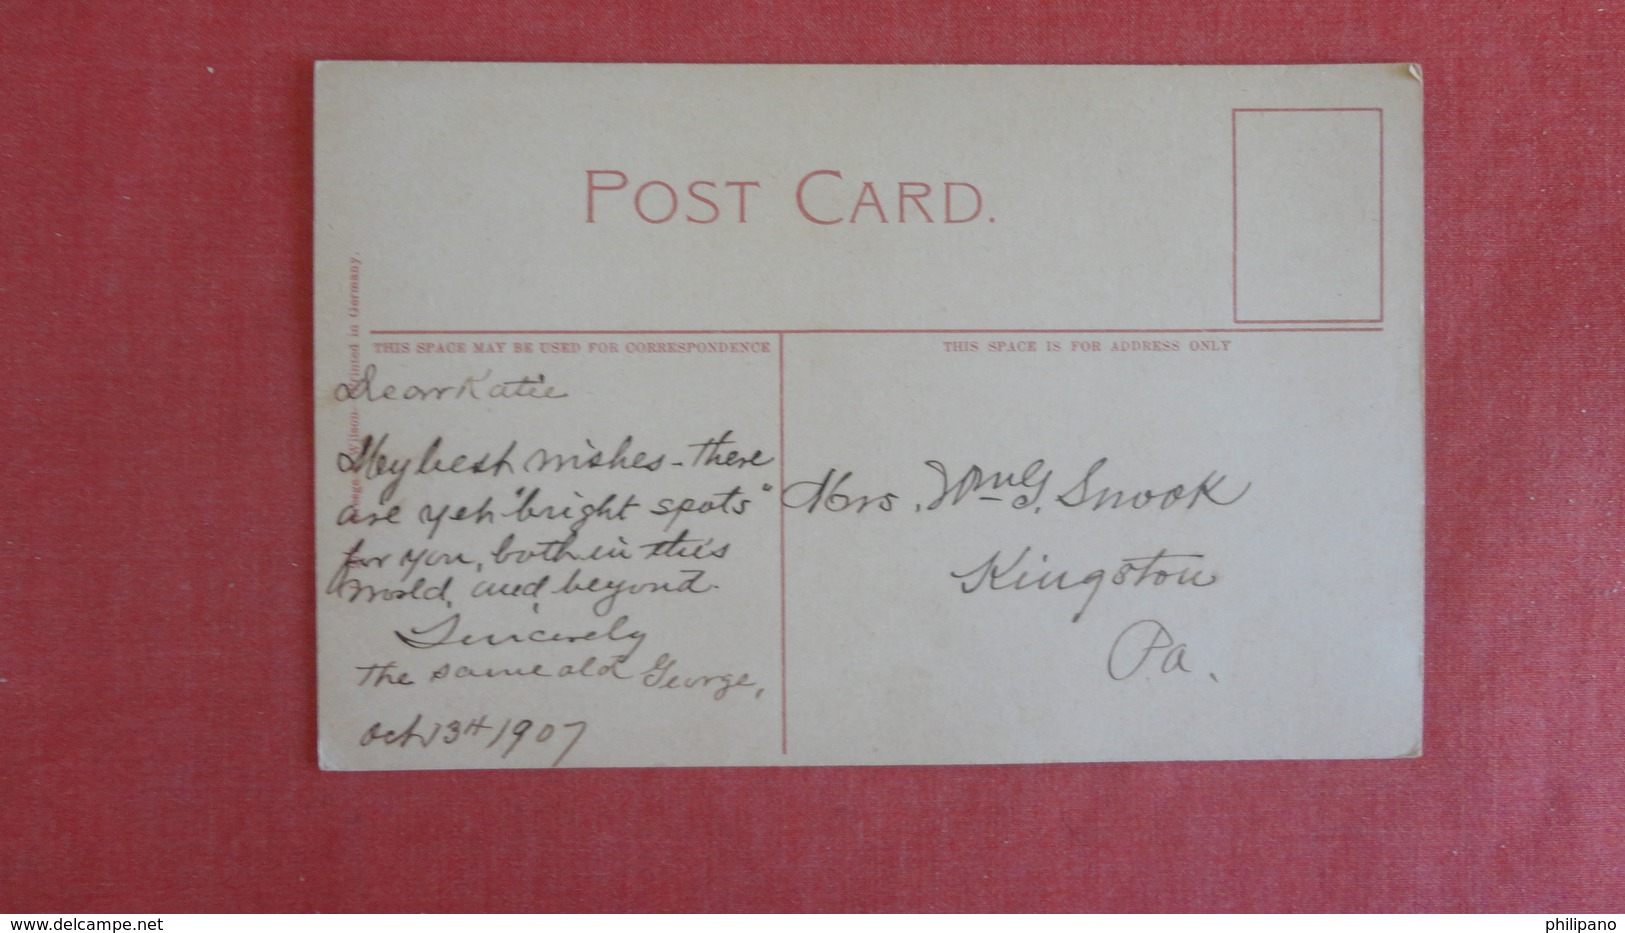 POST CARD.
Wilson- Printed in Germany.
THIS SPACE MAY BE USED FOR CORRESPONDENCE
THIS SPACE IS FOR ADDRESS ONLY
Dear Katie
My best wishes - there
are yet "bright spots"
for you, both in this
world, and beyond.
Sincerely
the same old George,
Oct 13th 1907
Mrs. Wm G. Snook
Kingston
Pa.
www.delcampe.net
philipano